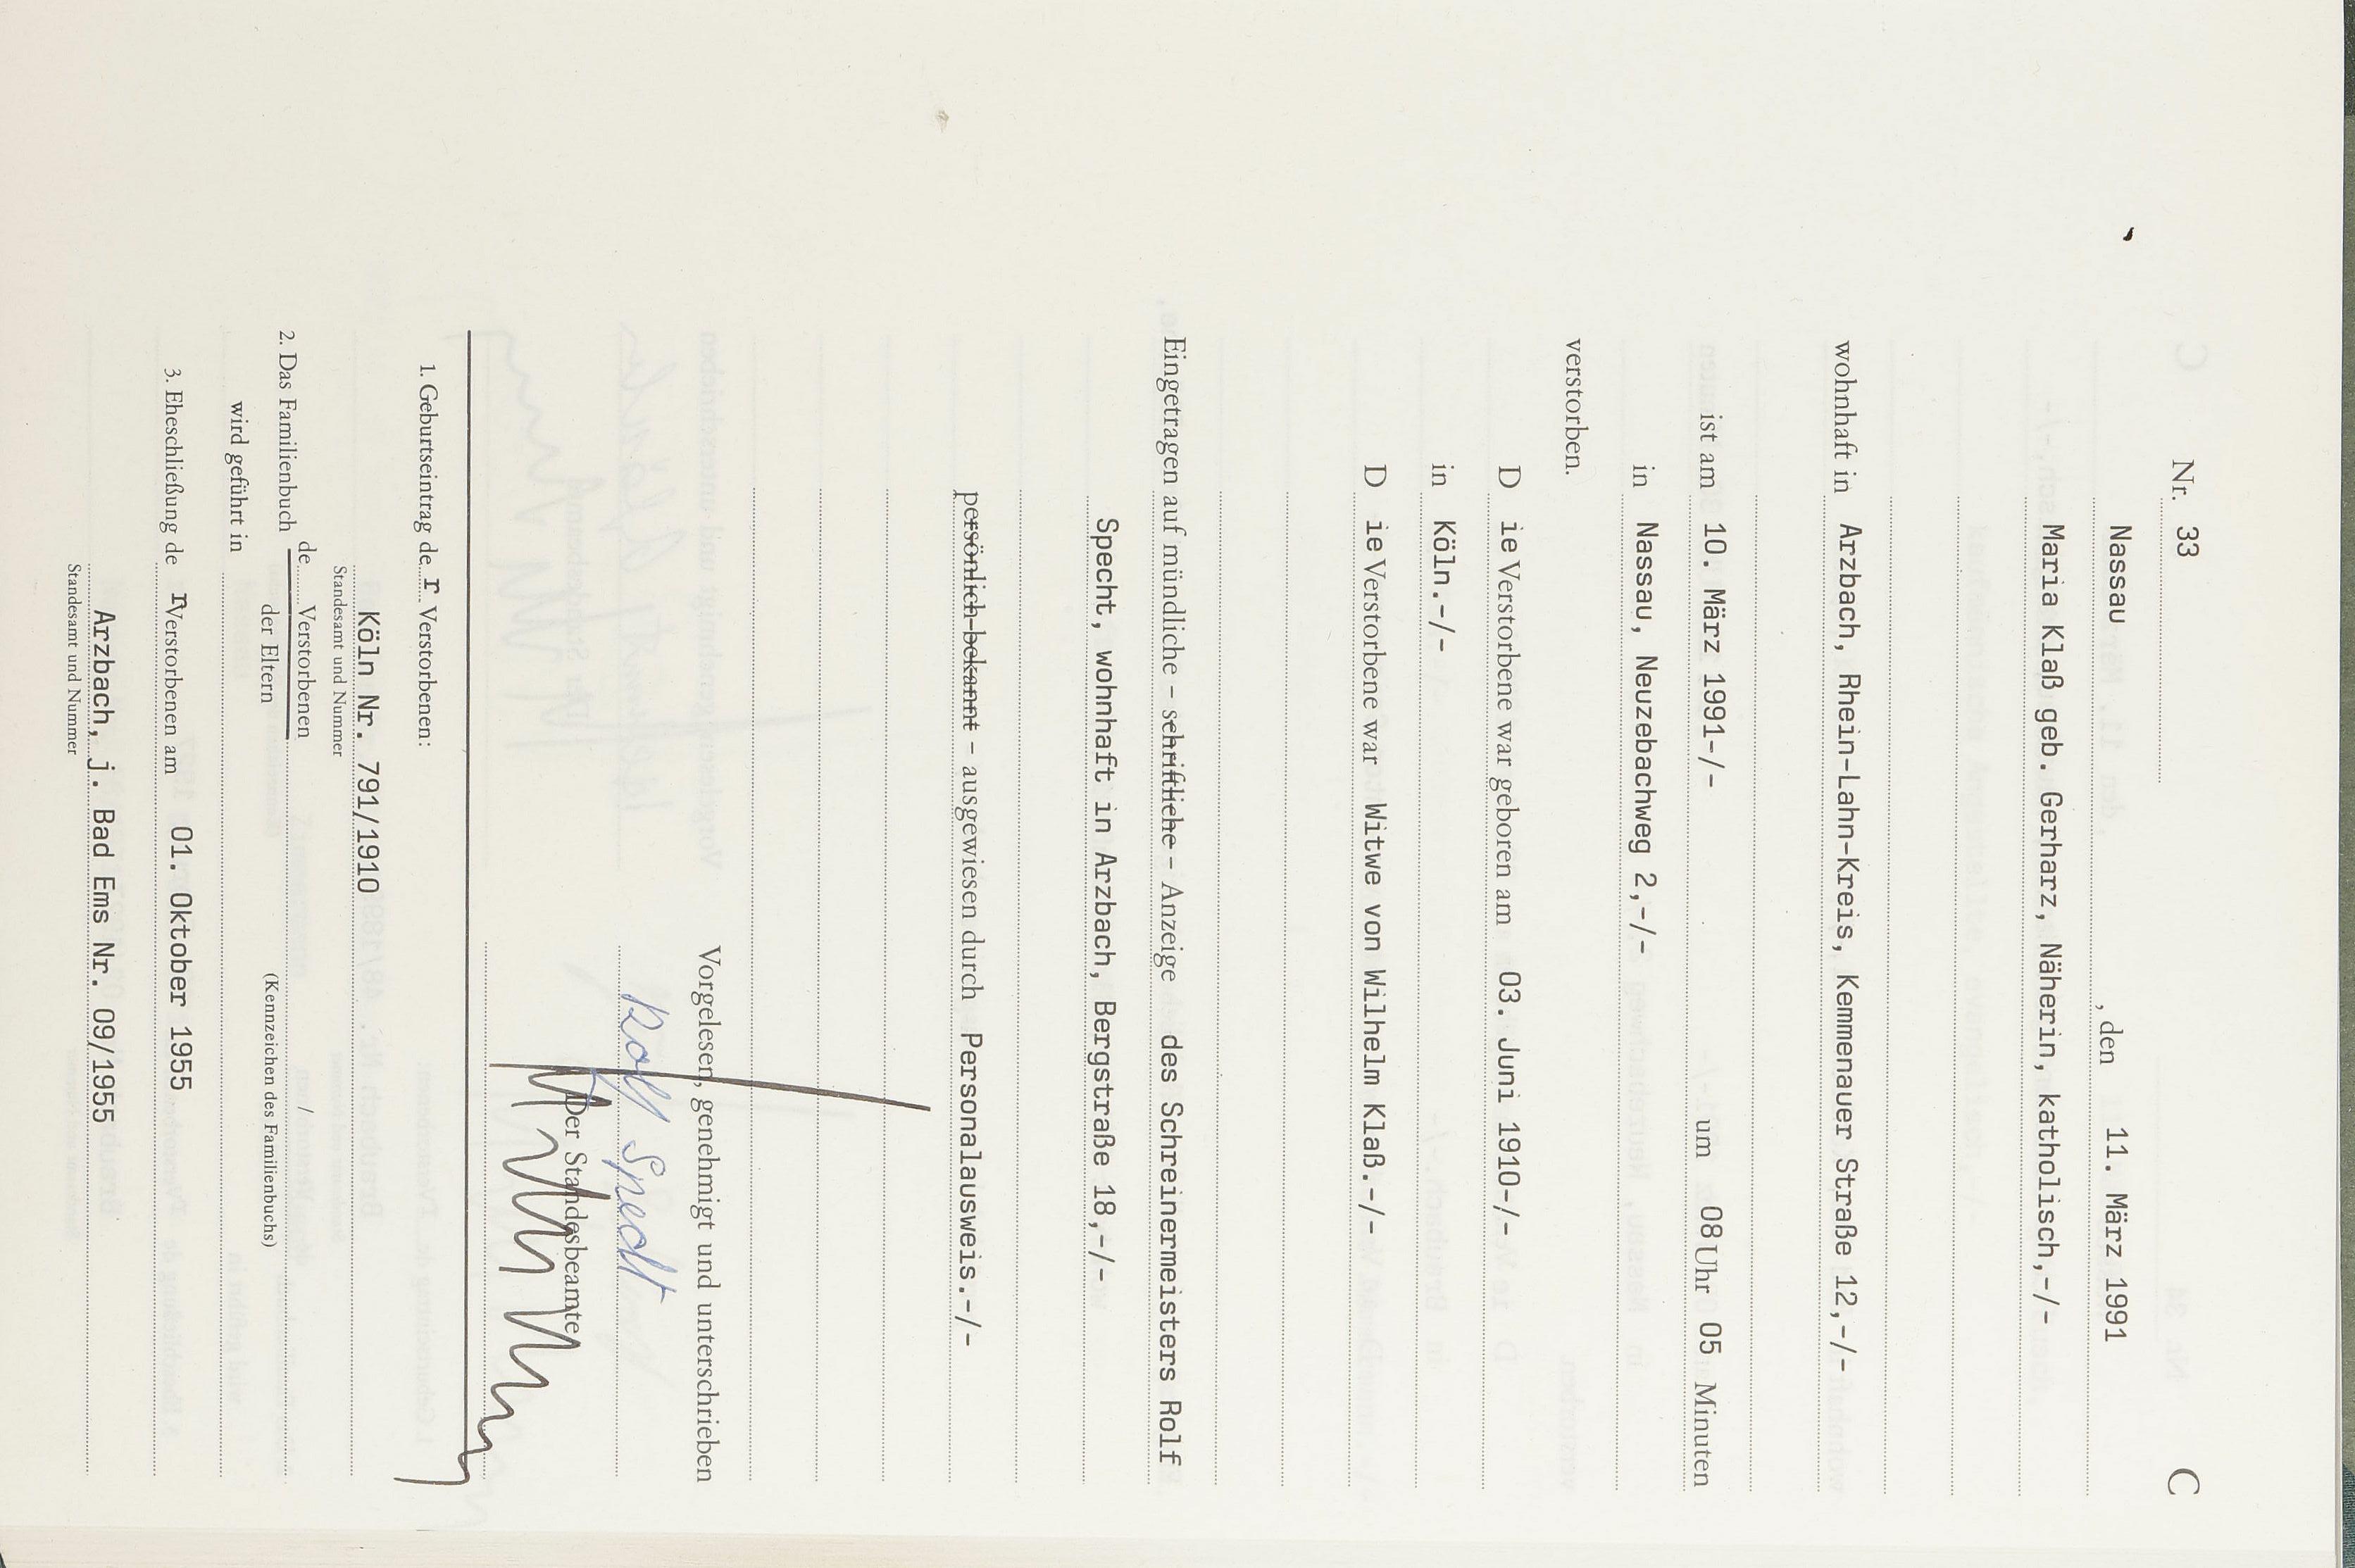 Nr. 33 C
Nassau , den 11. März 1991
Maria Klaß geb. Gerharz, Näherin, katholisch,-/-
wohnhaft in Arzbach, Rhein-Lahn-Kreis, Kemmenauer Straße 12,-/-
ist am 10. März 1991-/- um 08 Uhr 05 Minuten
in Nassau, Neuzebachweg 2,-/-
verstorben.
D ie Verstorbene war geboren am 03. Juni 1910-/-
in Köln.-/-
D ie Verstorbene war Witwe von Wilhelm Klaß.-/-
Eingetragen auf mündliche – schriftliche – Anzeige des Schreinermeisters Rolf
Specht, wohnhaft in Arzbach, Bergstraße 18,-/-
persönlich bekannt – ausgewiesen durch Personalausweis.-/-
Vorgelesen, genehmigt und unterschrieben
Rolf Specht
Der Standesbeamte
1. Geburtseintrag de r Verstorbenen:
Köln Nr. 791/1910
Standesamt und Nummer
2. Das Familienbuch de Verstorbenen /
der Eltern (Kennzeichen des Familienbuchs)
wird geführt in
3. Eheschließung de r Verstorbenen am 01. Oktober 1955
Arzbach, j. Bad Ems Nr. 09/1955
Standesamt und Nummer